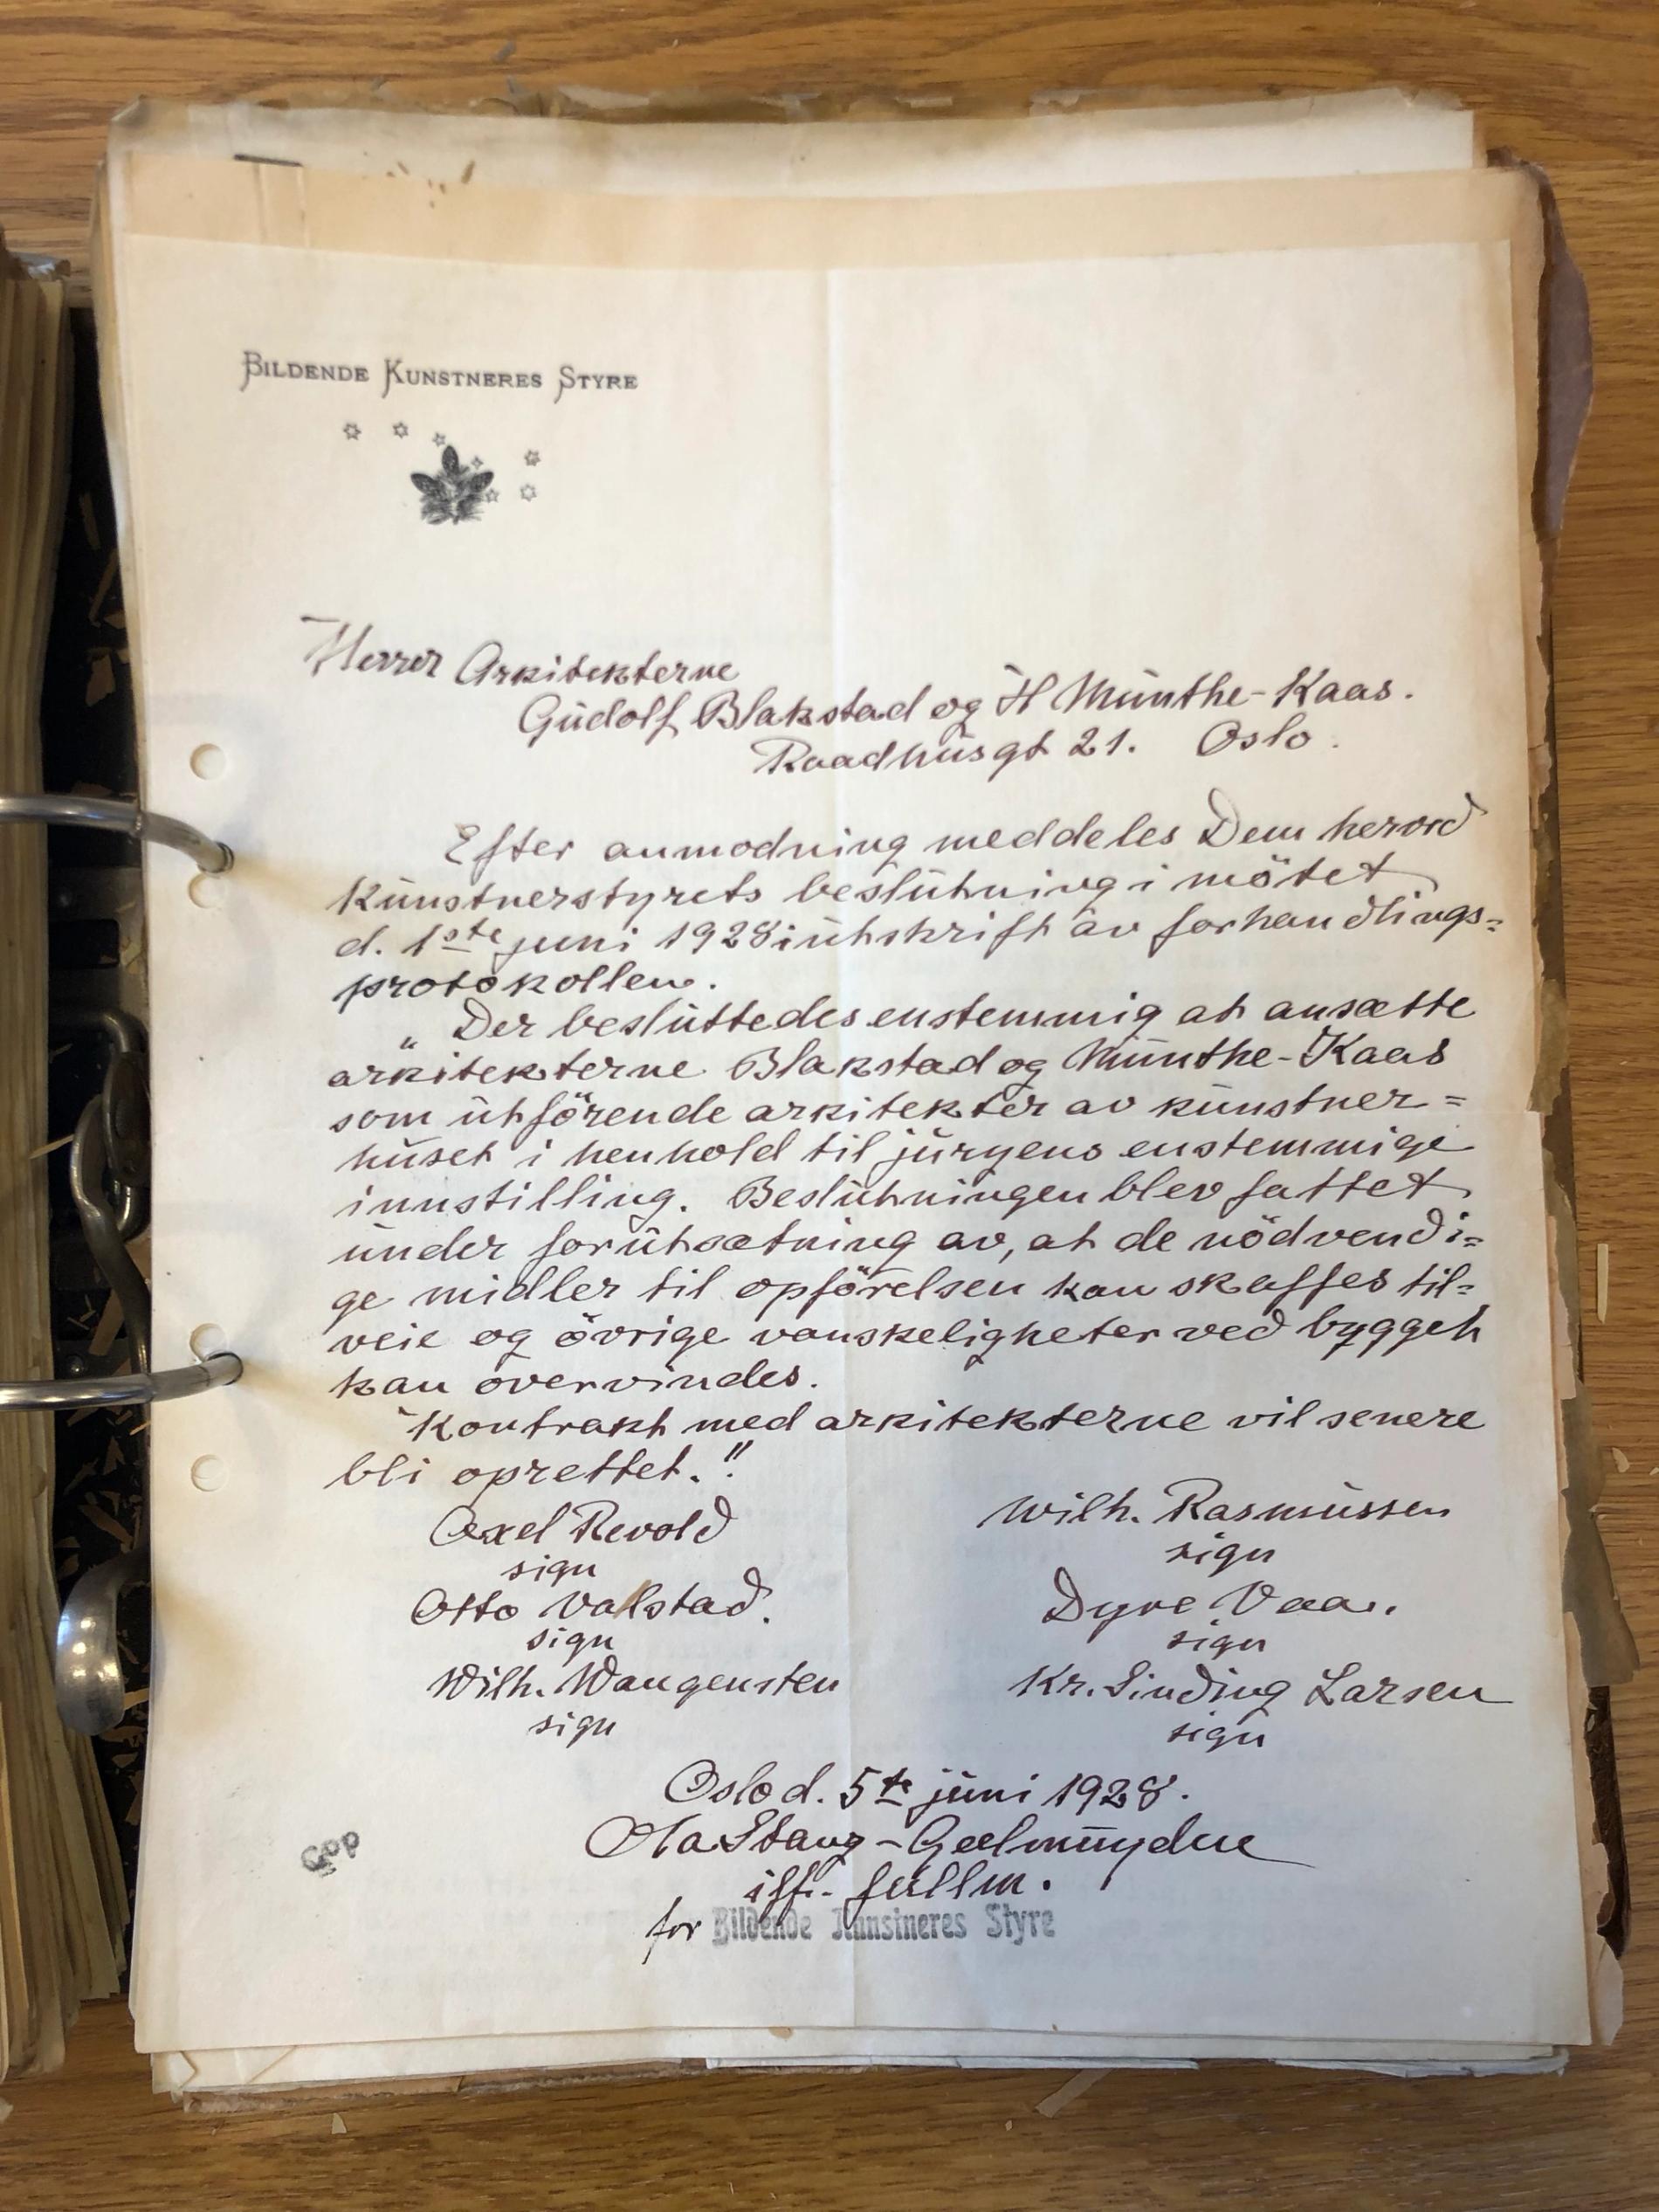 BILDENDE KUNSTNERES STYRE
Herrer Arkitekterne
Gudolf Blakstad og H Munthe-Kaas.
Raadhusgt 21. Oslo.
Efter anmodning meddeles Dem herved
kunstnerstyrets beslutning i mötet
d. 1ste juni 1928 i utskrift av forhandlings=
protokollen.
"Der besluttedes enstemmig at ansætte
arkitekterne Blakstad og Munthe-Kaas
som utförende arkitekter av kunstner=
huset i henhold til juryens enstemmige
innstilling. Beslutningen blev fattet
under forutsætning av, at de nödvendi=
ge midler til opförelsen kan skaffes til=
veie og övrige vanskeligheter ved bygget
kan overvindes.
Kontrakt med arkitekterne vil senere
bli oprettet."
Axel Revold Wilh. Rasmussen
sign sign
Otto Valstad. Dyre Vaa.
sign sign
Wilh. Wangensten Kr. Sinding Larsen
sign sign
Oslo d. 5te juni 1928.
Ola Stang-Geelmuyden
iflf. fullm.
for Bildende Kunstneres Styre